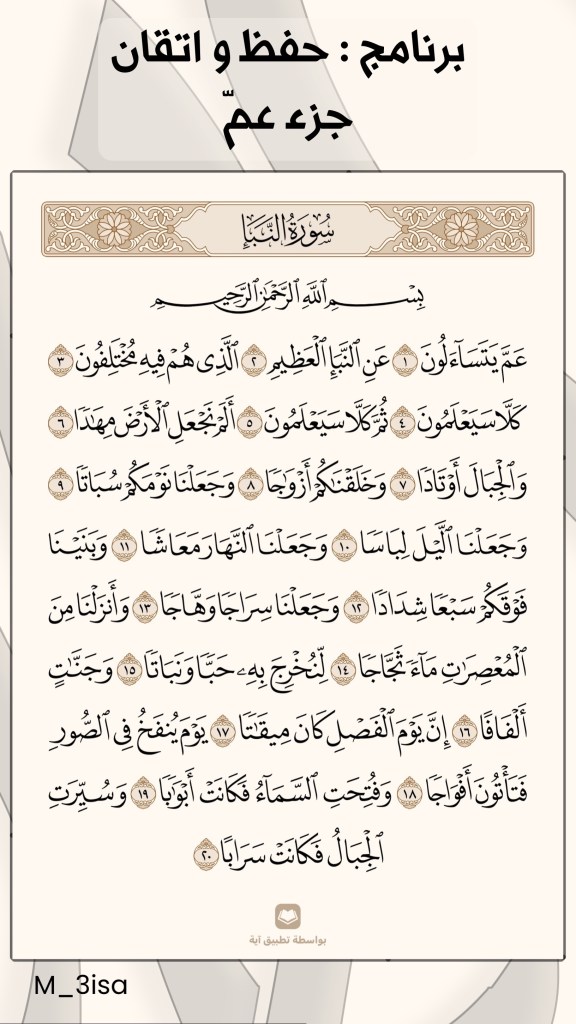 برنامج : حفظ و اتقان
جزء عمّ
سُورَةُ النَّبَإِ
بِسْمِ اللَّهِ الرَّحْمَٰنِ الرَّحِيمِ
عَمَّ يَتَسَآءَلُونَ ١ عَنِ ٱلنَّبَإِ ٱلْعَظِيمِ ٢ ٱلَّذِى هُمْ فِيهِ مُخْتَلِفُونَ ٣
كَلَّا سَيَعْلَمُونَ ٤ ثُمَّ كَلَّا سَيَعْلَمُونَ ٥ أَلَمْ نَجْعَلِ ٱلْأَرْضَ مِهَٰدًا ٦
وَٱلْجِبَالَ أَوْتَادًا ٧ وَخَلَقْنَٰكُمْ أَزْوَٰجًا ٨ وَجَعَلْنَا نَوْمَكُمْ سُبَاتًا ٩
وَجَعَلْنَا ٱلَّيْلَ لِبَاسًا ١٠ وَجَعَلْنَا ٱلنَّهَارَ مَعَاشًا ١١ وَبَنَيْنَا
فَوْقَكُمْ سَبْعًا شِدَادًا ١٢ وَجَعَلْنَا سِرَاجًا وَهَّاجًا ١٣ وَأَنزَلْنَا مِنَ
ٱلْمُعْصِرَٰتِ مَآءً ثَجَّاجًا ١٤ لِّنُخْرِجَ بِهِۦ حَبًّا وَنَبَاتًا ١٥ وَجَنَّٰتٍ
أَلْفَافًا ١٦ إِنَّ يَوْمَ ٱلْفَصْلِ كَانَ مِيقَٰتًا ١٧ يَوْمَ يُنفَخُ فِى ٱلصُّورِ
فَتَأْتُونَ أَفْوَاجًا ١٨ وَفُتِحَتِ ٱلسَّمَآءُ فَكَانَتْ أَبْوَٰبًا ١٩ وَسُيِّرَتِ
ٱلْجِبَالُ فَكَانَتْ سَرَابًا ٢٠
بواسطة تطبيق آية
M_3isa